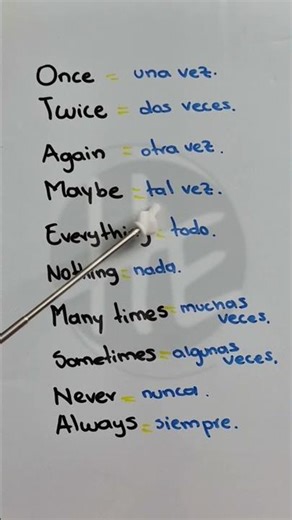 Once = una vez.
Twice = dos veces.
Again = otra vez.
Maybe = tal vez.
Everything = todo.
Nothing = nada.
Many times = muchas
veces.
Sometimes = algunas
veces.
Never = nunca.
Always = siempre.